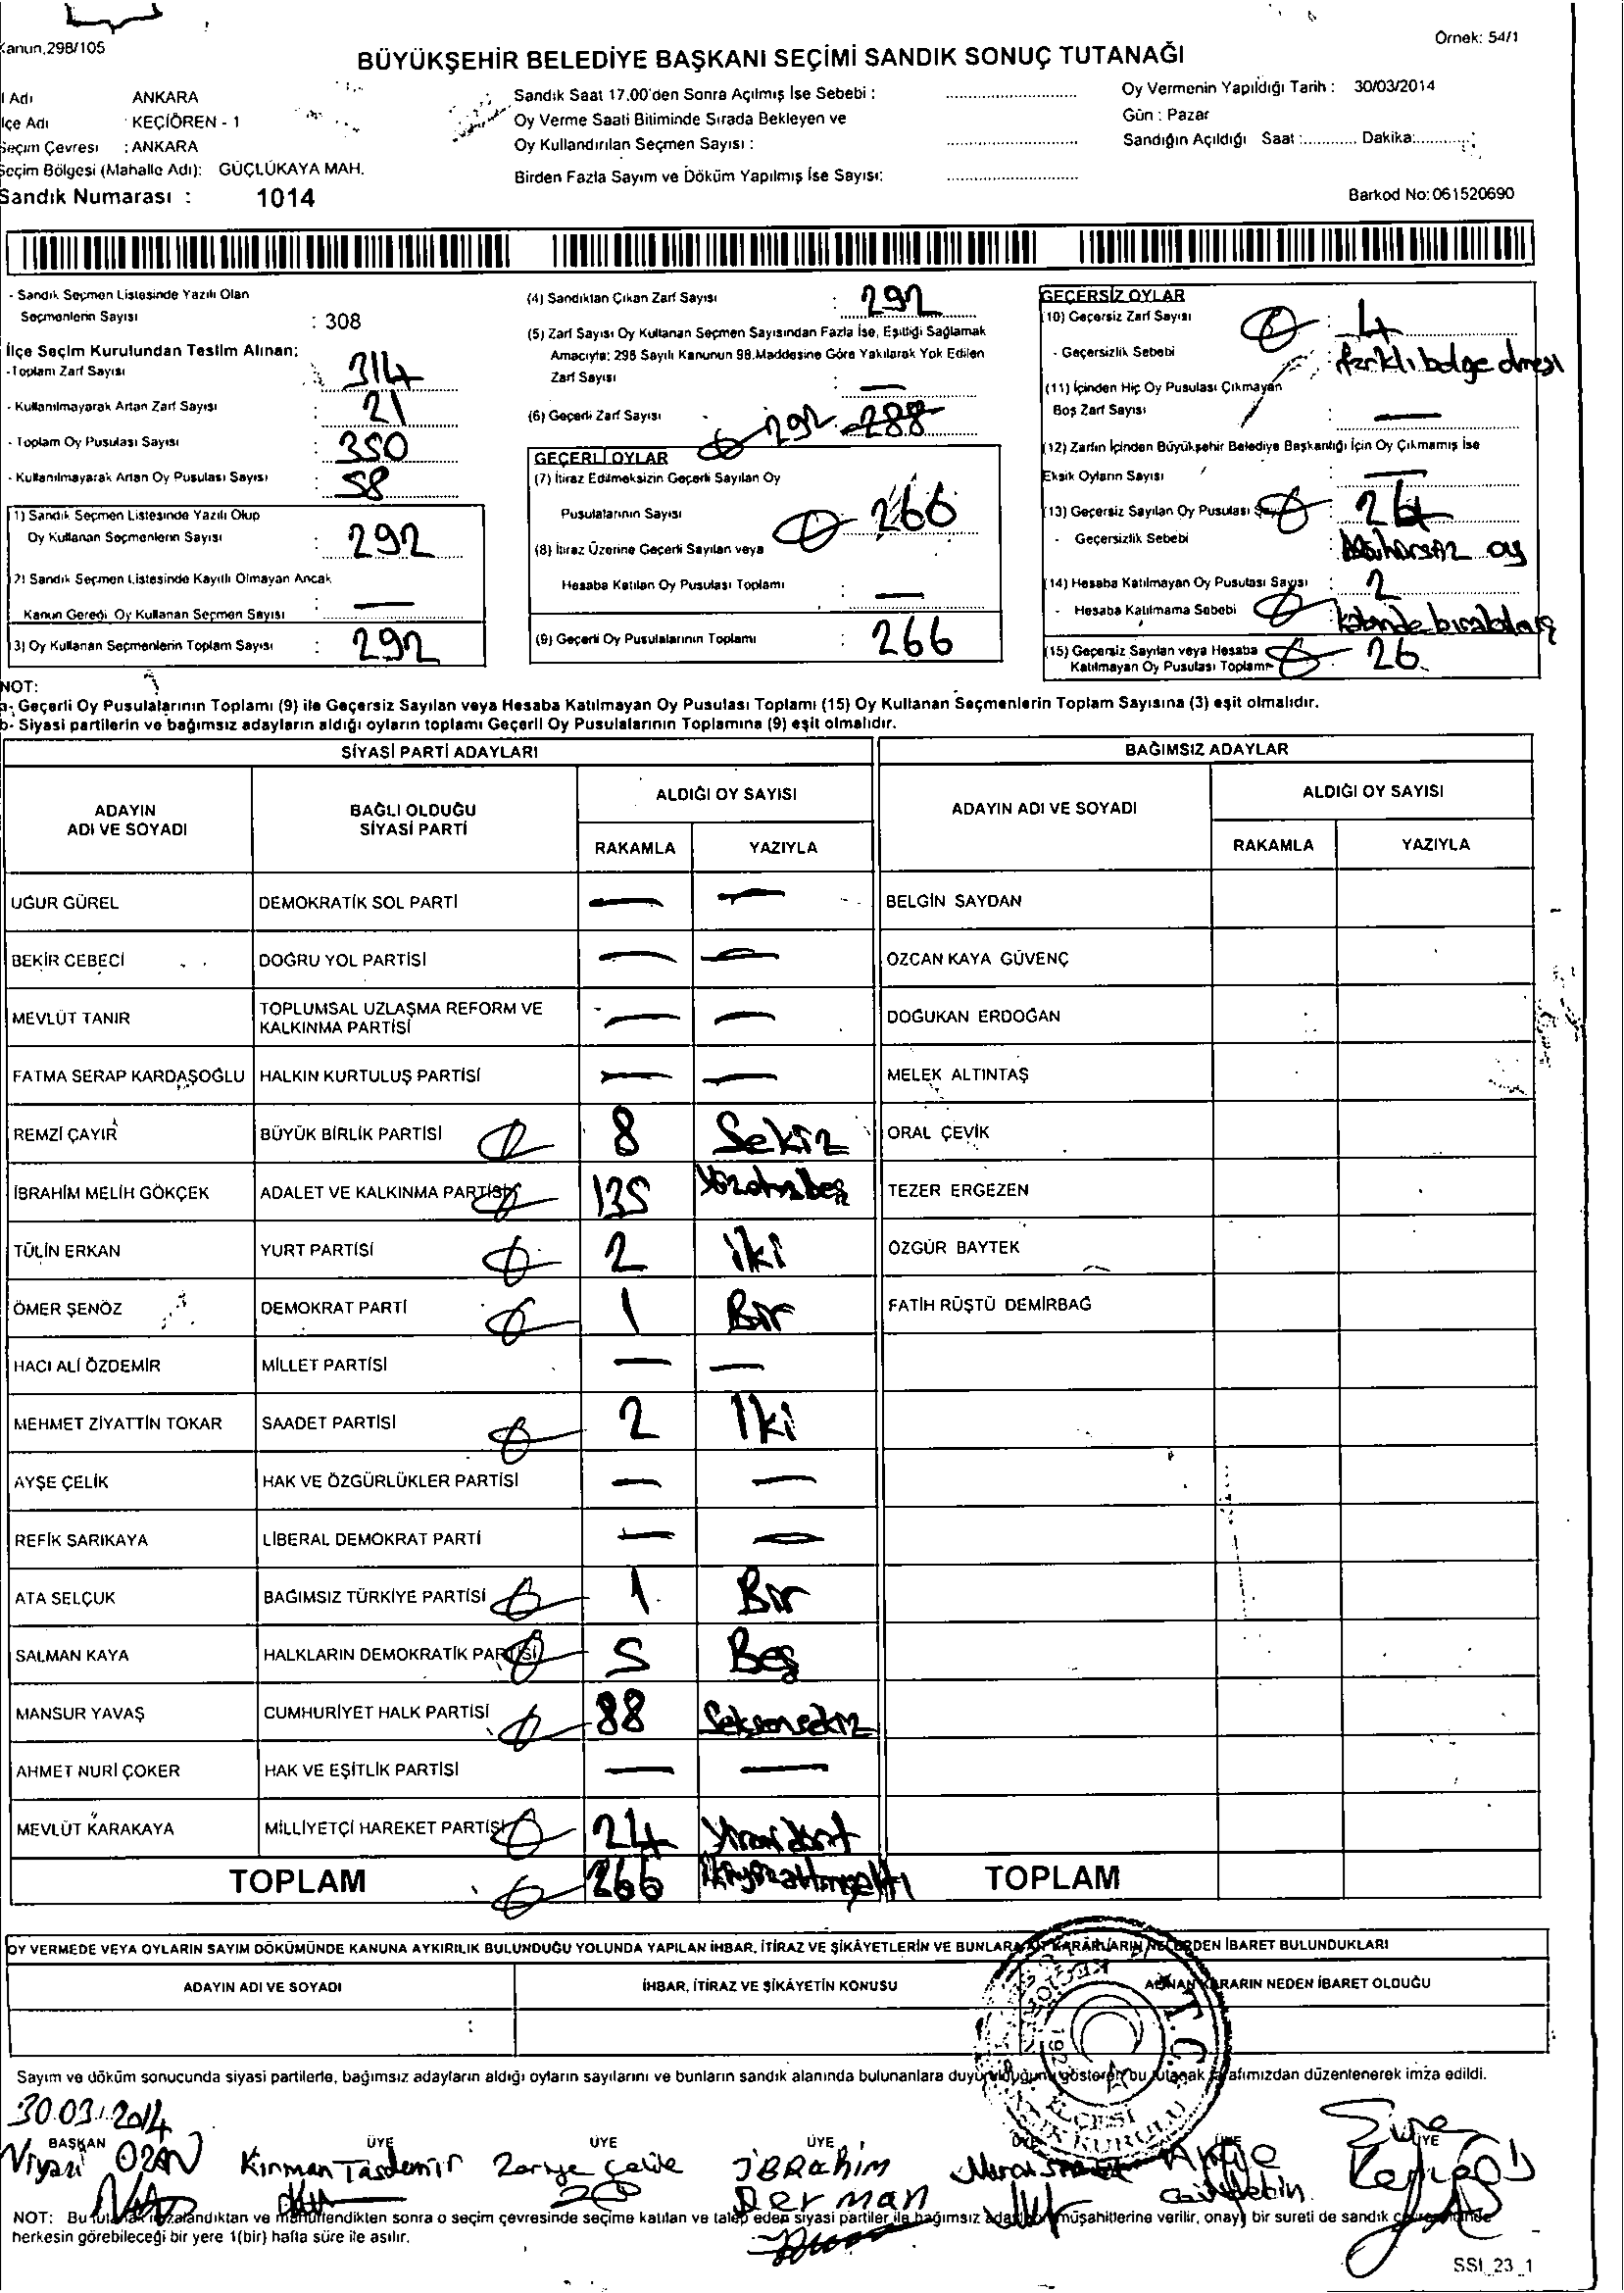 Kanun,298/105
Örnek: 54/1
BÜYÜKŞEHİR BELEDİYE BAŞKANI SEÇİMİ SANDIK SONUÇ TUTANAĞI
l Adı ANKARA
lçe Adı : KEÇİÖREN - 1
Seçim Çevresi : ANKARA
Seçim Bölgesi (Mahalle Adı): GÜÇLÜKAYA MAH.
Sandık Numarası : 1014
Sandık Saat 17.00'den Sonra Açılmış İse Sebebi :
Oy Verme Saati Bitiminde Sırada Bekleyen ve
Oy Kullandırılan Seçmen Sayısı :
Birden Fazla Sayım ve Döküm Yapılmış İse Sayısı:
Oy Vermenin Yapıldığı Tarih : 30/03/2014
Gün : Pazar
Sandığın Açıldığı Saat :............ Dakika:............
Barkod No: 061520690
- Sandık Seçmen Listesinde Yazılı Olan
Seçmenlerin Sayısı : 308
İlçe Seçim Kurulundan Teslim Alınan;
- Toplam Zarf Sayısı : 314
- Kullanılmayarak Artan Zarf Sayısı : 21
- Toplam Oy Pusulası Sayısı : 350
- Kullanılmayarak Artan Oy Pusulası Sayısı : 58
(1) Sandık Seçmen Listesinde Yazılı Olup
Oy Kullanan Seçmenlerin Sayısı : 292
(2) Sandık Seçmen Listesinde Kayıtlı Olmayan Ancak
Kanun Gereği Oy Kullanan Seçmen Sayısı : —
(3) Oy Kullanan Seçmenlerin Toplam Sayısı : 292
(4) Sandıktan Çıkan Zarf Sayısı : 292
(5) Zarf Sayısı Oy Kullanan Seçmen Sayısından Fazla İse, Eşitliği Sağlamak
Amacıyla; 298 Sayılı Kanunun 98.Maddesine Göre Yakılarak Yok Edilen
Zarf Sayısı : —
(6) Geçerli Zarf Sayısı : 292 288
GEÇERLİ OYLAR
(7) İtiraz Edilmeksizin Geçerli Sayılan Oy
Pusulalarının Sayısı 266
(8) İtiraz Üzerine Geçerli Sayılan veya
Hesaba Katılan Oy Pusulası Toplamı : —
(9) Geçerli Oy Pusulalarının Toplamı : 266
GEÇERSİZ OYLAR
(10) Geçersiz Zarf Sayısı : 4
- Geçersizlik Sebebi : farklı belge olması
(11) İçinden Hiç Oy Pusulası Çıkmayan
Boş Zarf Sayısı : —
(12) Zarfın İçinden Büyükşehir Belediye Başkanlığı İçin Oy Çıkmamış İse
Eksik Oyların Sayısı : —
(13) Geçersiz Sayılan Oy Pusulası : 24
- Geçersizlik Sebebi : Mühürsüz oy
(14) Hesaba Katılmayan Oy Pusulası Sayısı : 2
- Hesaba Katılmama Sebebi : kabinde bırakılmış
(15) Geçersiz Sayılan veya Hesaba
Katılmayan Oy Pusulası Toplamı 26
NOT:
a- Geçerli Oy Pusulalarının Toplamı (9) ile Geçersiz Sayılan veya Hesaba Katılmayan Oy Pusulası Toplamı (15) Oy Kullanan Seçmenlerin Toplam Sayısına (3) eşit olmalıdır.
b- Siyasi partilerin ve bağımsız adayların aldığı oyların toplamı Geçerli Oy Pusulalarının Toplamına (9) eşit olmalıdır.
SİYASİ PARTİ ADAYLARI BAĞIMSIZ ADAYLAR
ADAYIN ADI VE SOYADI BAĞLI OLDUĞU SİYASİ PARTİ ALDIĞI OY SAYISI ADAYIN ADI VE SOYADI ALDIĞI OY SAYISI
RAKAMLA YAZIYLA RAKAMLA YAZIYLA
UĞUR GÜREL DEMOKRATİK SOL PARTİ — — BELGİN SAYDAN
BEKİR CEBECİ DOĞRU YOL PARTİSİ — — ÖZCAN KAYA GÜVENÇ
MEVLÜT TANIR TOPLUMSAL UZLAŞMA REFORM VE KALKINMA PARTİSİ — — DOĞUKAN ERDOĞAN
FATMA SERAP KARDAŞOĞLU HALKIN KURTULUŞ PARTİSİ — — MELEK ALTINTAŞ
REMZİ ÇAYIR BÜYÜK BİRLİK PARTİSİ 8 Sekiz ORAL ÇEVİK
İBRAHİM MELİH GÖKÇEK ADALET VE KALKINMA PARTİSİ 135 Yüzotuzbeş TEZER ERGEZEN
TÜLİN ERKAN YURT PARTİSİ 2 iki ÖZGÜR BAYTEK
ÖMER ŞENÖZ DEMOKRAT PARTİ 1 Bir FATİH RÜŞTÜ DEMİRBAĞ
HACI ALİ ÖZDEMİR MİLLET PARTİSİ — —
MEHMET ZİYATTİN TOKAR SAADET PARTİSİ 2 İki
AYŞE ÇELİK HAK VE ÖZGÜRLÜKLER PARTİSİ — —
REFİK SARIKAYA LİBERAL DEMOKRAT PARTİ — —
ATA SELÇUK BAĞIMSIZ TÜRKİYE PARTİSİ 1 Bir
SALMAN KAYA HALKLARIN DEMOKRATİK PARTİSİ 5 Beş
MANSUR YAVAŞ CUMHURİYET HALK PARTİSİ 88 Seksensekiz
AHMET NURİ ÇOKER HAK VE EŞİTLİK PARTİSİ — —
MEVLÜT KARAKAYA MİLLİYETÇİ HAREKET PARTİSİ 24 Yirmidört
TOPLAM 266 ikiyüzaltmışaltı TOPLAM
OY VERMEDE VEYA OYLARIN SAYIM DÖKÜMÜNDE KANUNA AYKIRILIK BULUNDUĞU YOLUNDA YAPILAN İHBAR, İTİRAZ VE ŞİKÂYETLERİN VE BUNLARA AİT KARARLARIN NELERDEN İBARET BULUNDUKLARI
ADAYIN ADI VE SOYADI İHBAR, İTİRAZ VE ŞİKÂYETİN KONUSU ALINAN KARARIN NEDEN İBARET OLDUĞU
T.C.
Sayım ve döküm sonucunda siyasi partilerle, bağımsız adayların aldığı oyların sayılarını ve bunların sandık alanında bulunanlara duyurulduğunu gösteren bu tutanak tarafımızdan düzenlenerek imza edildi.
30.03.2014
BAŞKAN ÜYE ÜYE ÜYE ÜYE ÜYE ÜYE
Niyazi OZAN Kırman Taşdemir Zeriye Çelik İBRAHİM Derman
NOT: Bu tutanak imzalandıktan ve mühürlendikten sonra o seçim çevresinde seçime katılan ve talep eden siyasi partiler ile bağımsız adayların müşahitlerine verilir, onaylı bir sureti de sandık çevresinde
herkesin görebileceği bir yere 1(bir) hafta süre ile asılır.
SSI_23_1